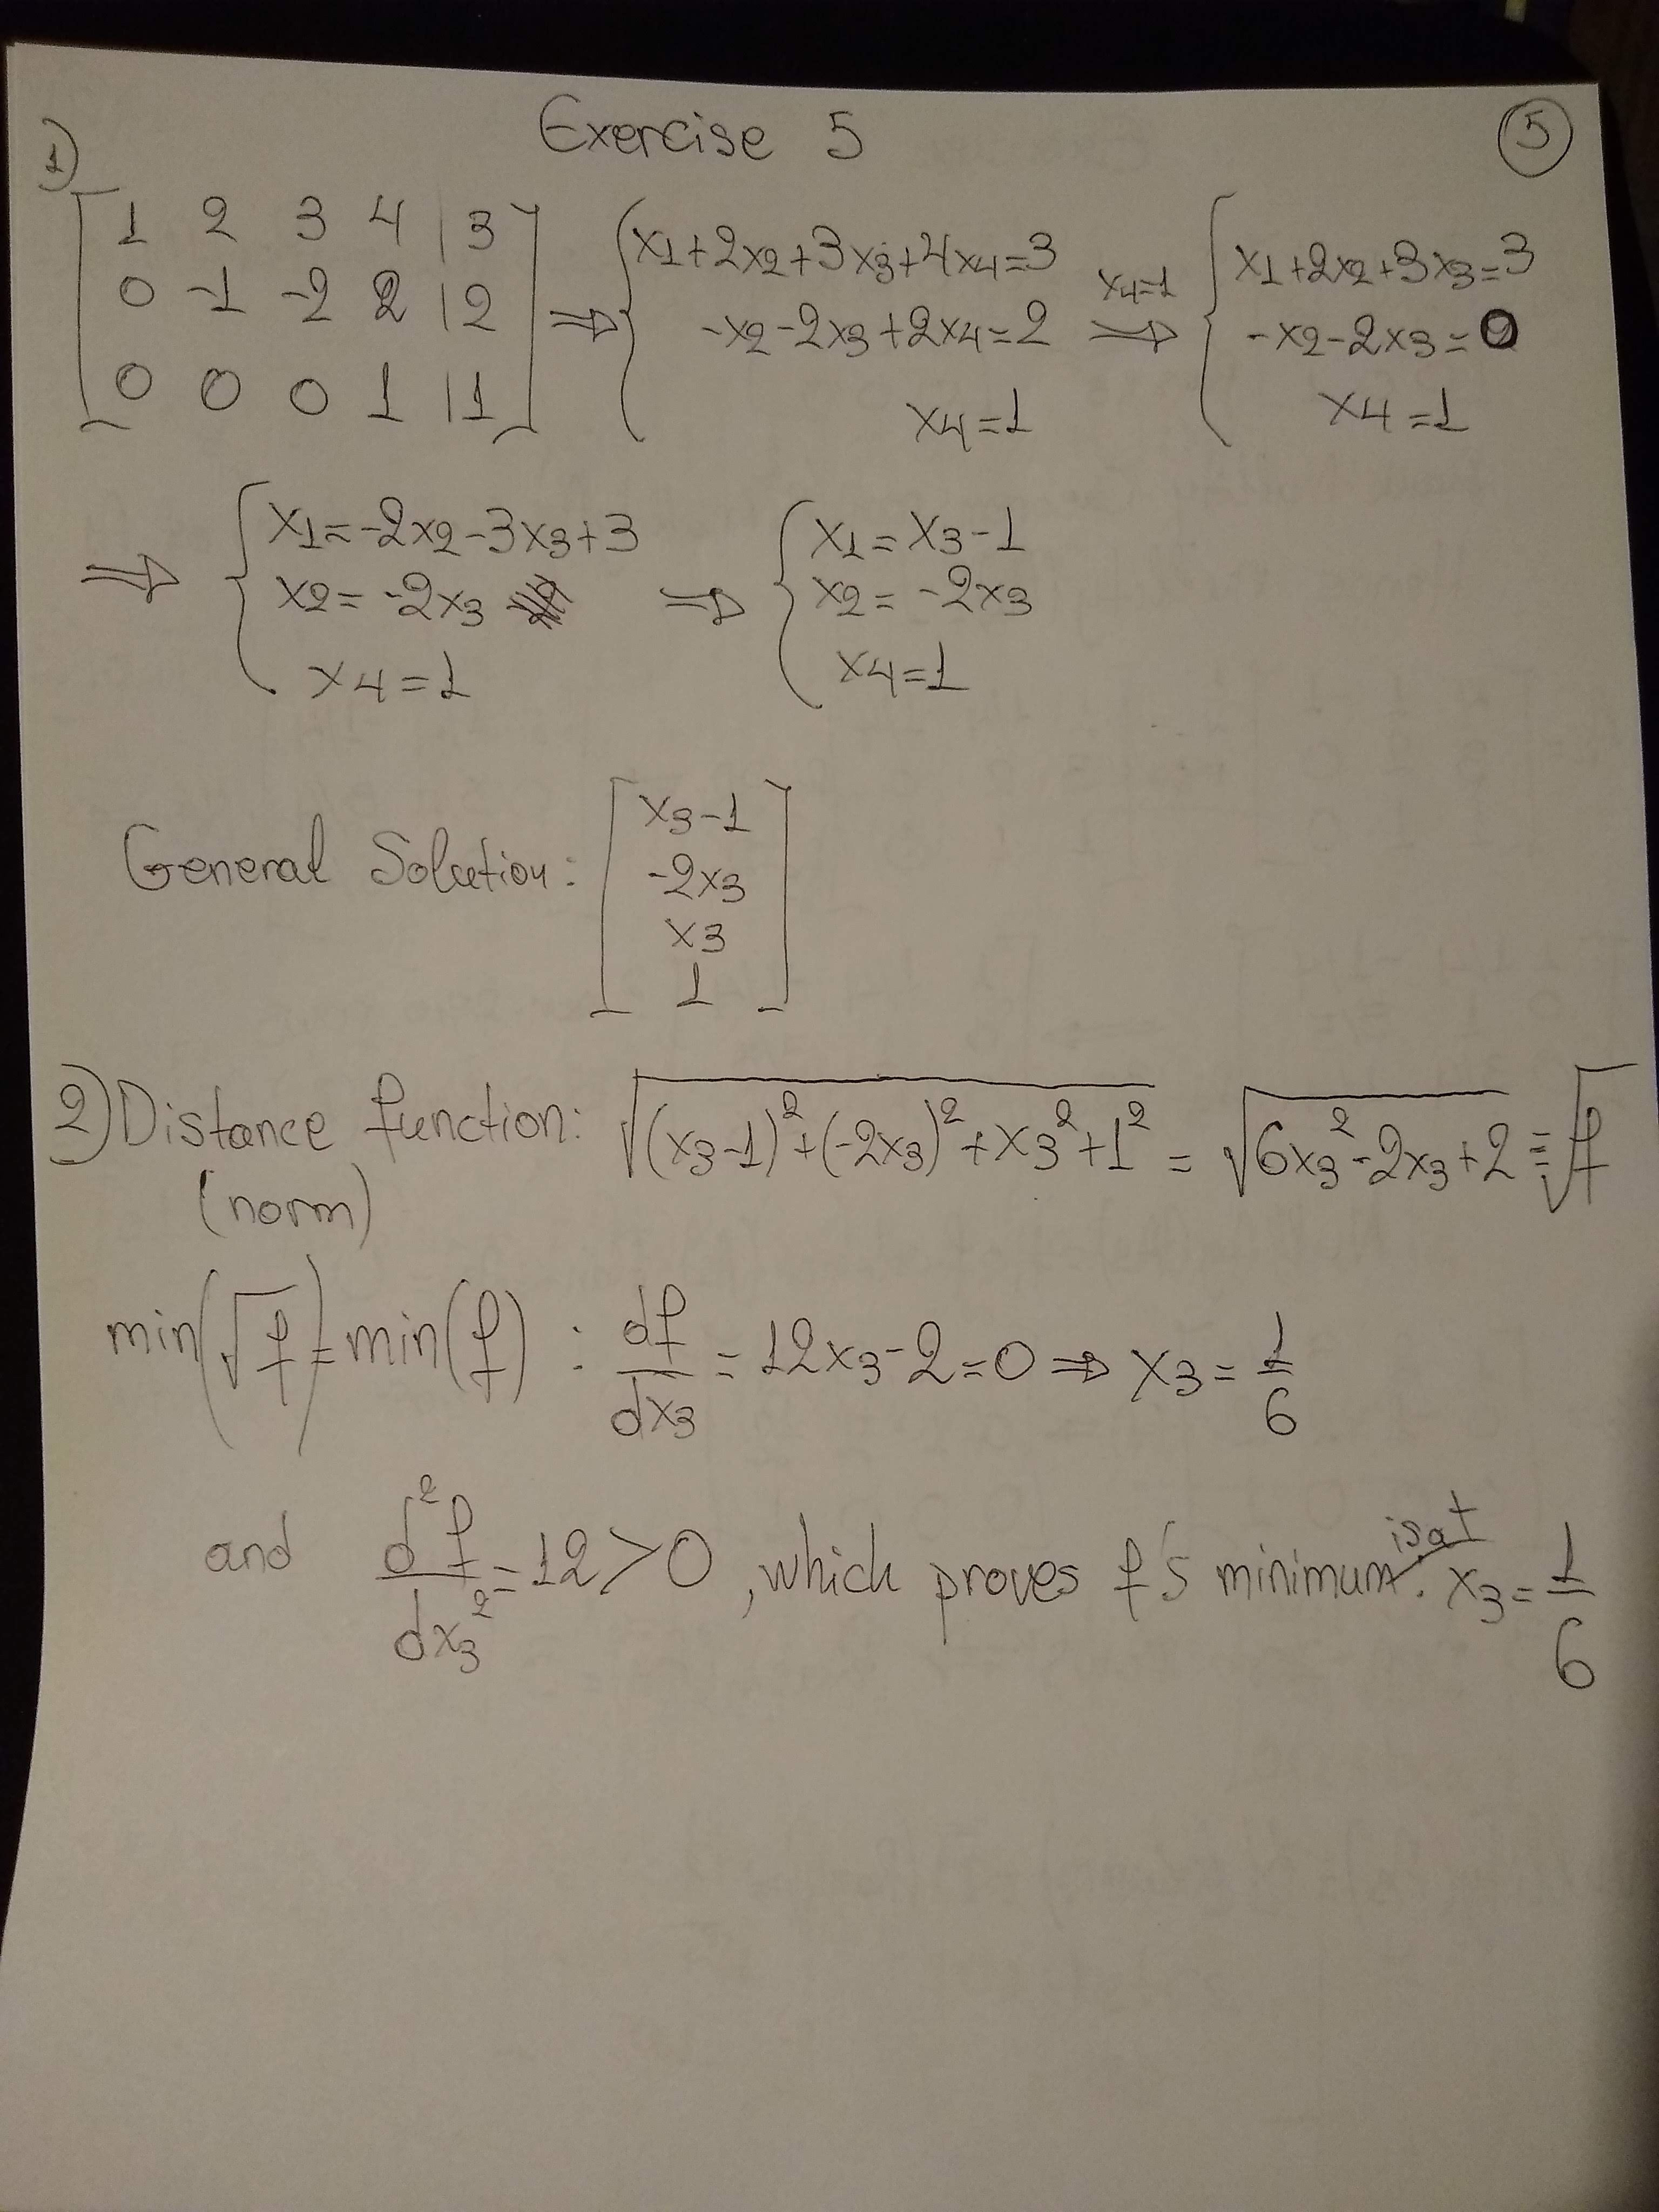 Exercise 5
5
1)
[1 2 3 4 | 3] ⇒ { x1+2x2+3x3+4x4=3 x4=1 ⇒ { x1+2x2+3x3=3
[0 -1 -2 2 | 2] -x2-2x3+2x4=2 -x2-2x3=0
[0 0 0 1 | 1] x4=1 x4=1
⇒ { x1=-2x2-3x3+3 ⇒ { x1=x3-1
x2=-2x3 x2=-2x3
x4=1 x4=1
General Solution: [x3-1
-2x3
x3
1]
2) Distance function: √((x3-1)²+(-2x3)²+x3²+1²) = √(6x3²-2x3+2) ≡ √f
(norm)
min(√f)=min(f) : df/dx3 = 12x3-2=0 ⇒ x3=1/6
and d²f/dx3² = 12>0, which proves f's minimum is at x3=1/6